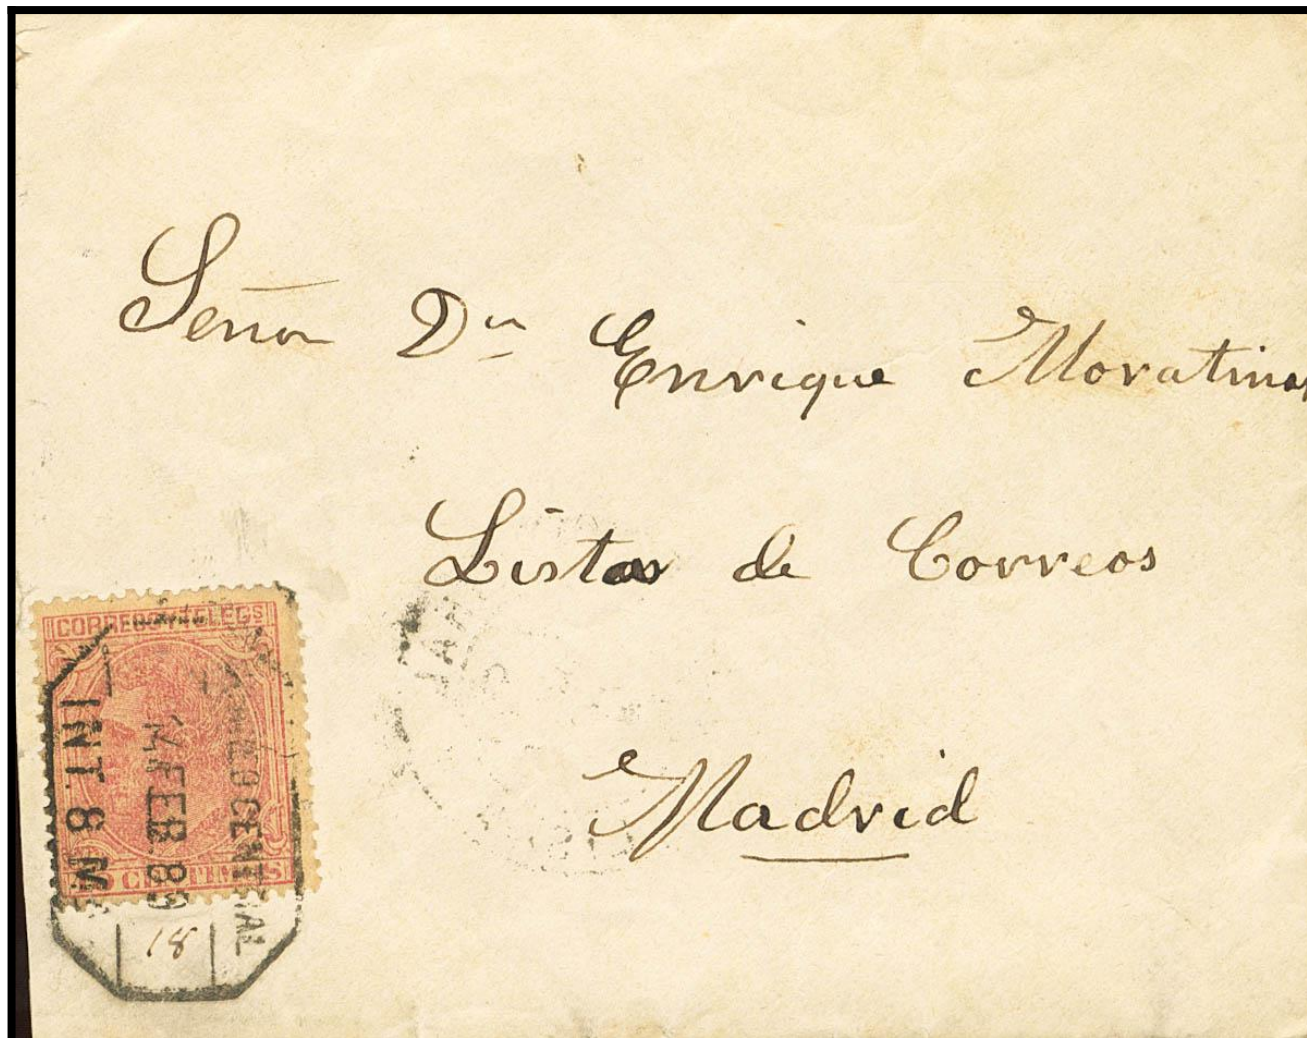 Señor Dn Enrique Moratinos
Listas de Correos
Madrid
CORREOS Y TELEGS
CENTRAL
FEB 89
INT. 8 M
18